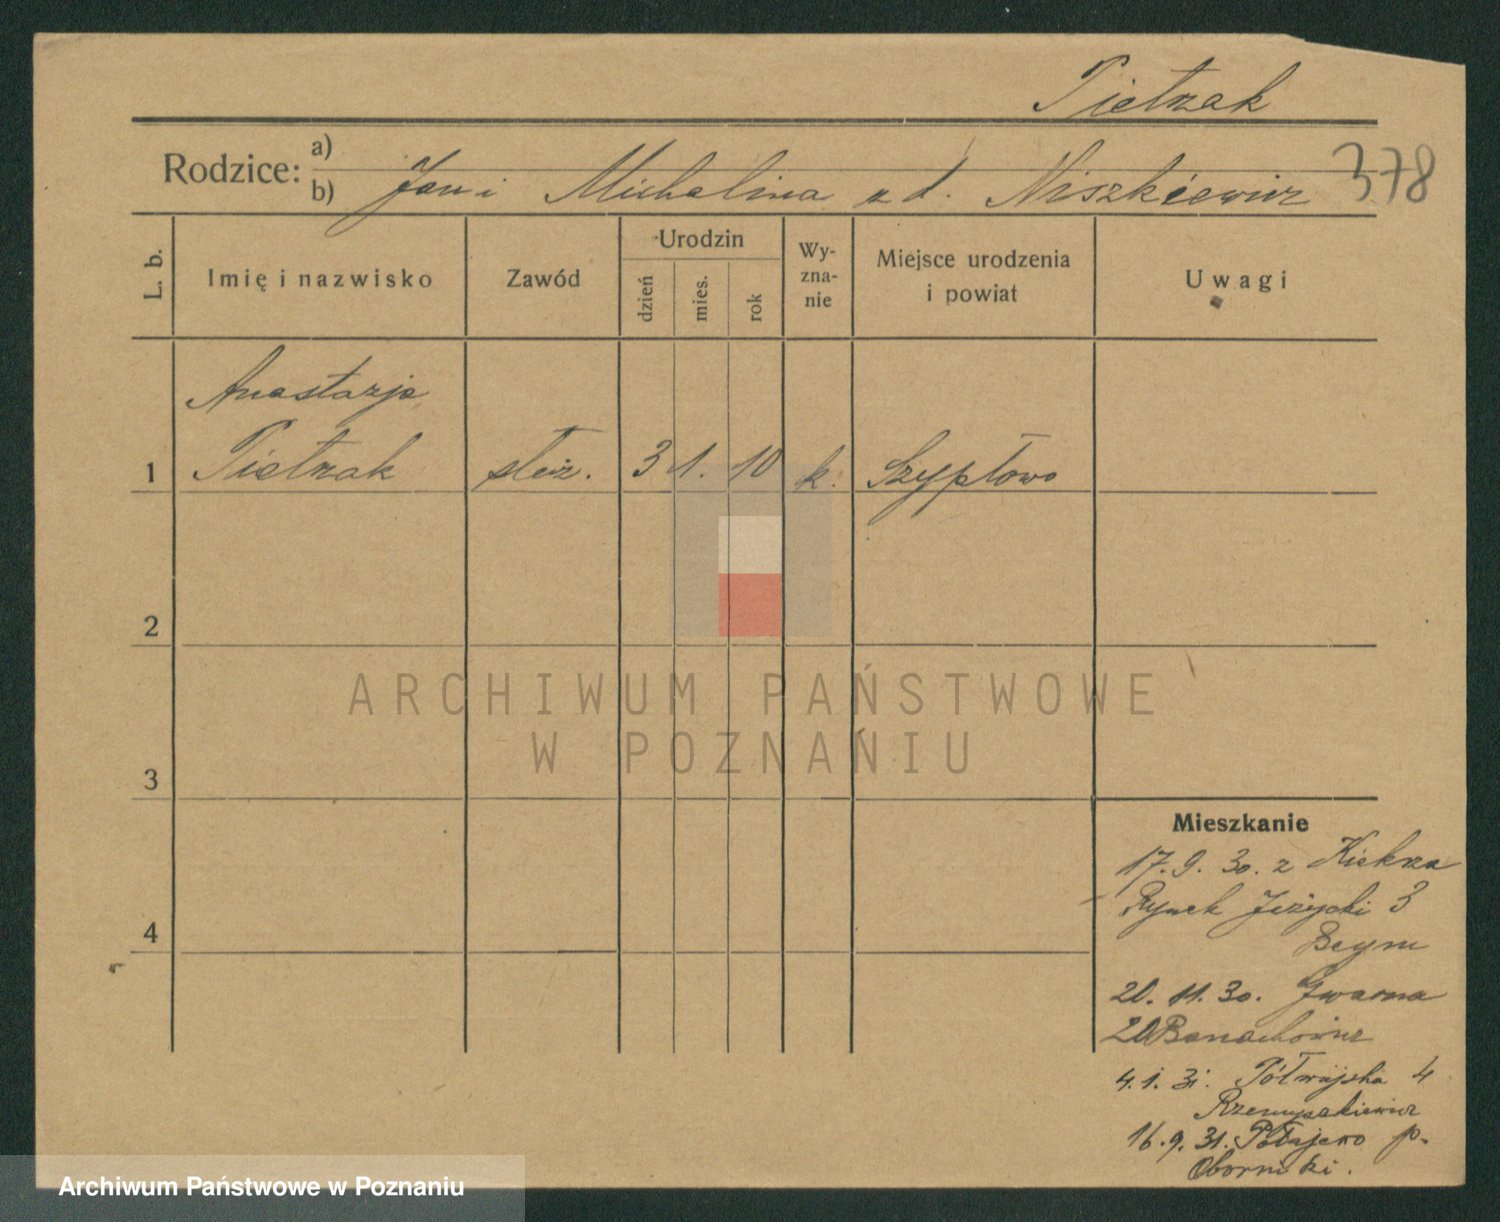 Pietrzak
Rodzice: a)
b) Jan i Michalina z d. Niszkiewicz
378
L. b.
Imię i nazwisko
Zawód
Urodzin
dzień
mies.
rok
Wy-
zna-
nie
Miejsce urodzenia
i powiat
Uwagi
Anastazja
1 Pietrzak służ. 3 1. 10 k. Szypłowo
2
3
4
ARCHIWUM PAŃSTWOWE
W POZNANIU
Mieszkanie
17.9.30. z Kiekrza
Rynek Jeżycki 3
Beym
20.11.30. Gwarna
20 Banachowicz
4.1.31. Półwiejska 4
16.9.31. p.
Oborniki.
Archiwum Państwowe w Poznaniu